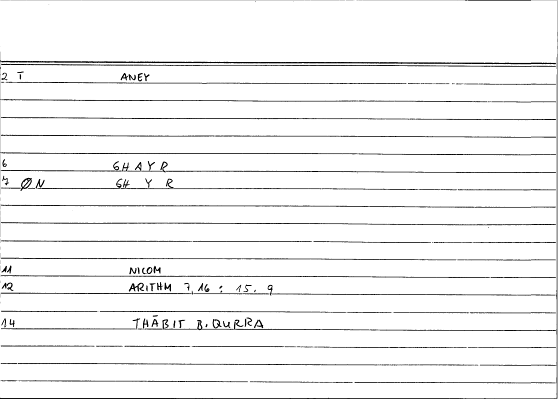 2 T ANEY
6 GHAYR
7 ØN GH Y R
11 NICOM
12 ARITHM 7,16 : 15. 9
14 THĀBIT B. QURRA